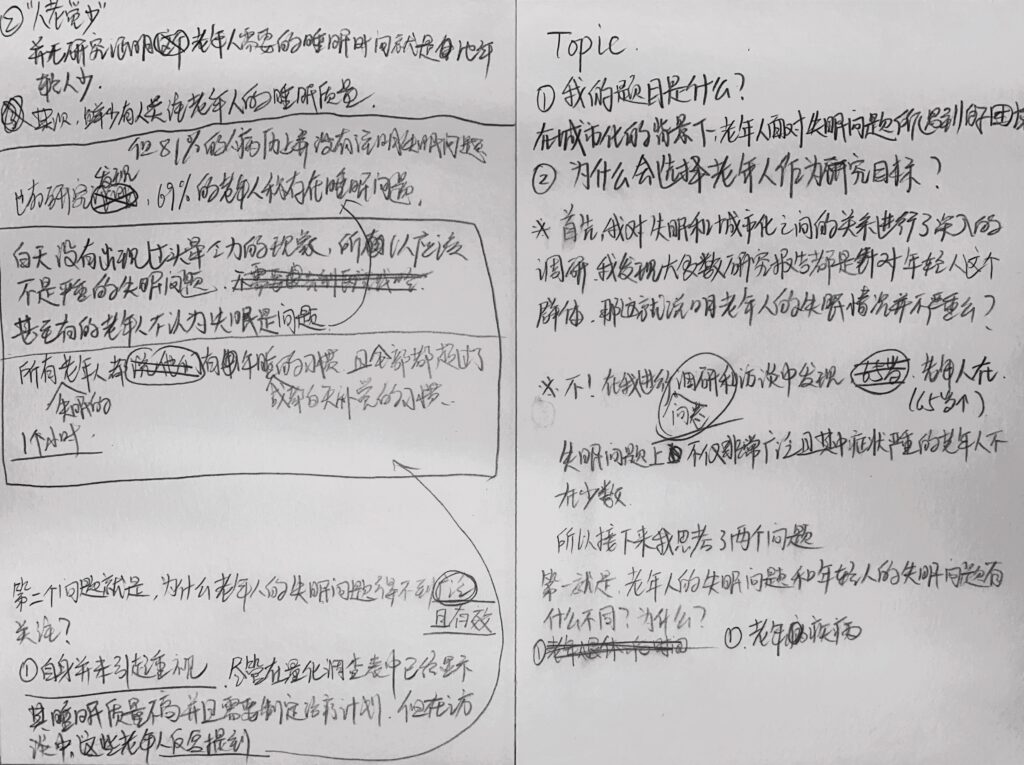 Topic.
① 我的题目是什么？
在城市化的背景下，老年人面对失眠问题所遇到的困
② 为什么会选择老年人作为研究目标？
* 首先，我对失眠和城市化之间的关系进行了深入的
调研，我发现大多数研究报告都是针对年轻人这个
群体，那这就说明老年人的失眠情况并不严重么？
* 不！在我进行调研和访谈中发现 老年人在
问卷
(65岁个)
失眠问题上不仅非常广泛且其中症状严重的老年人不
在少数
所以接下来我思考了两个问题
第一就是，老年人的失眠问题和年轻人的失眠问题有
什么不同？为什么？
① 老年疾病
② "人老觉少"
并无研究证明老年人需要的睡眠时间就是比年
轻人少．
其次，鲜少有人关注老年人的睡眠质量．
但81%的人病历上并没有注明失眠问题
发现
也有研究，69%的老年人称存在睡眠问题．
白天没有出现过头晕乏力的现象，所以应该
不是严重的失眠问题．
甚至有的老年人不认为失眠是问题
所有老年人都有午睡的习惯，且全部都超过了
失眠的
1个小时．
第二个问题就是，为什么老年人的失眠问题得不到
且有效
关注？
① 自身并未引起重视．尽管在量化调查表中已经显示
其睡眠质量不高并且需要制定治疗计划．但在访
谈中，这些老年人反而提到